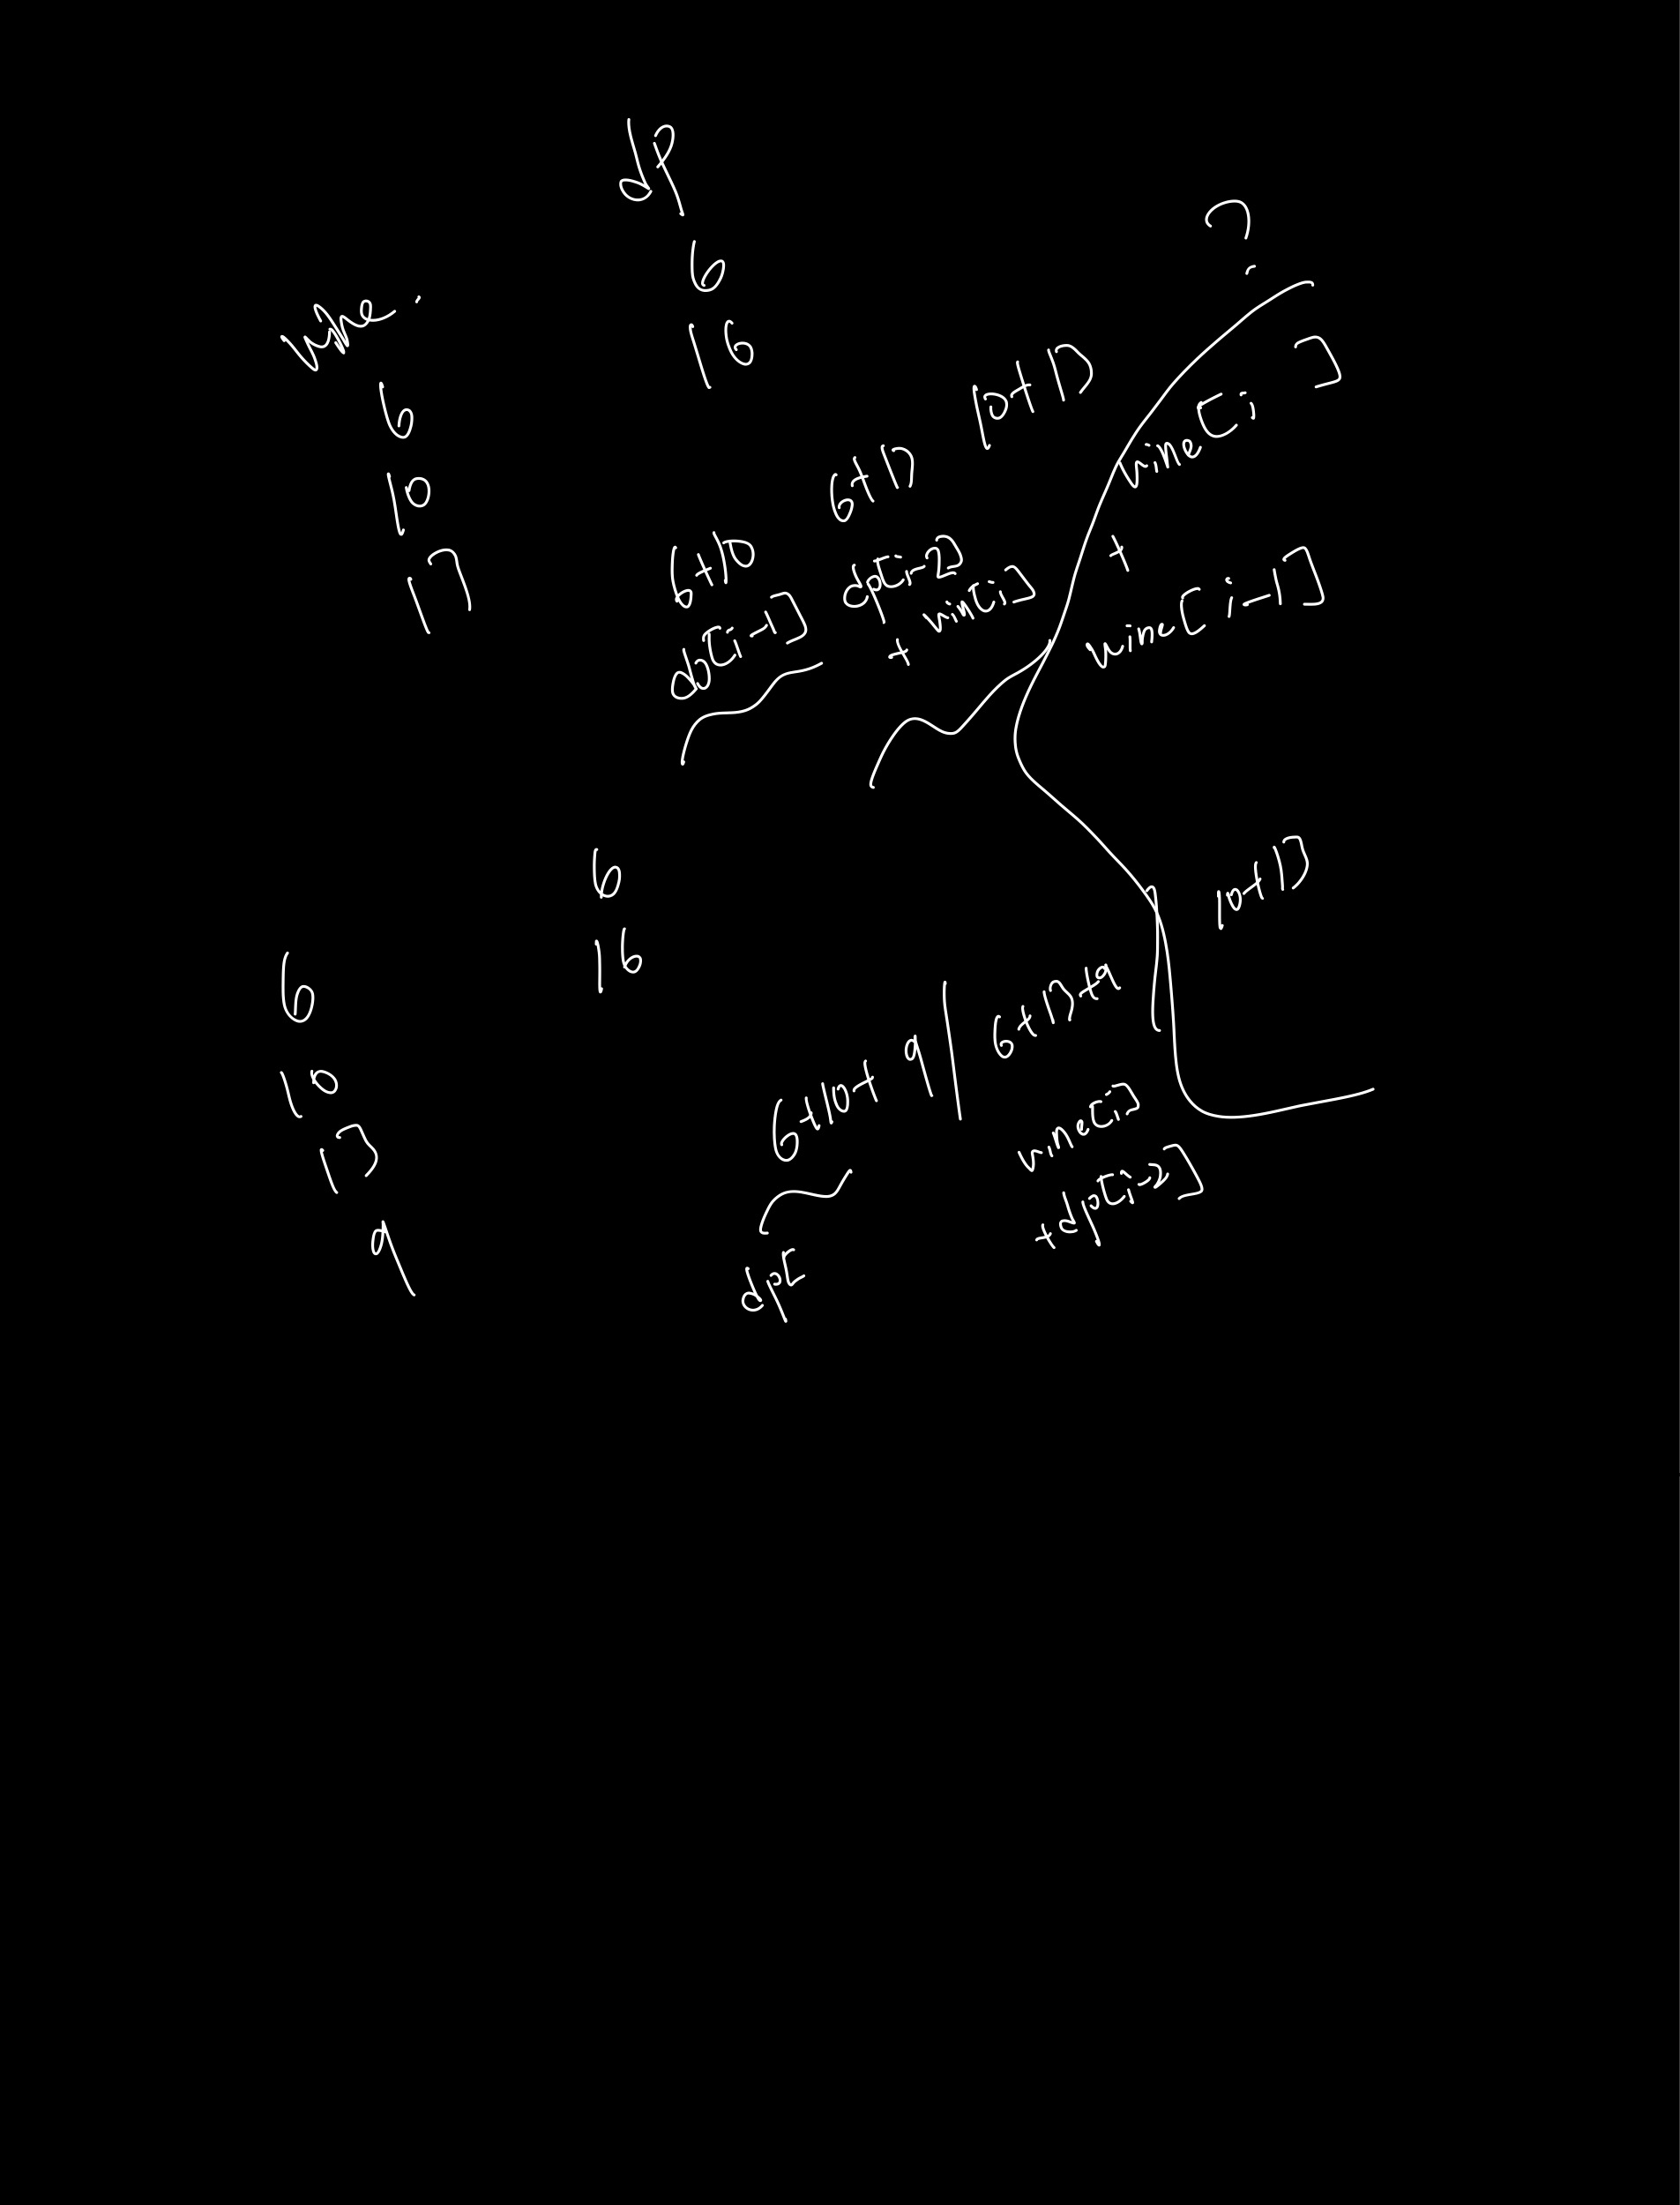 dp 6 16
?
wine. 6 10 13
6+10 6+13 10+13
wine[i]
dp[i-1] dp[i-2]
+ wine[i]
+
wine[i-1]
6 16
10+13
6 10 13 9
6+10+9 | 6+13+9
wine[i]
+dp[i-2]
dp[